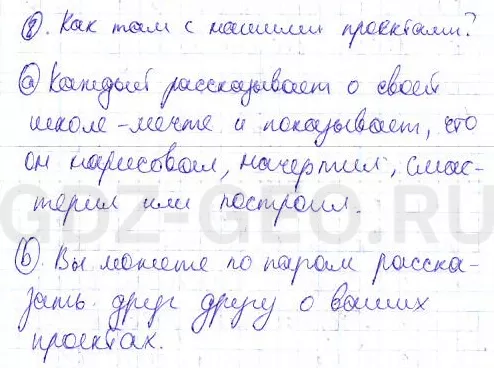 8. Как там с нашими проектами?
a Каждый рассказывает о своей
школе-мечте и показывает, что
он нарисовал, начертил, смас-
терил или построил.
GDZ-GEO.RU
b. Вы можете по парам расска-
зать друг другу о ваших
проектах.